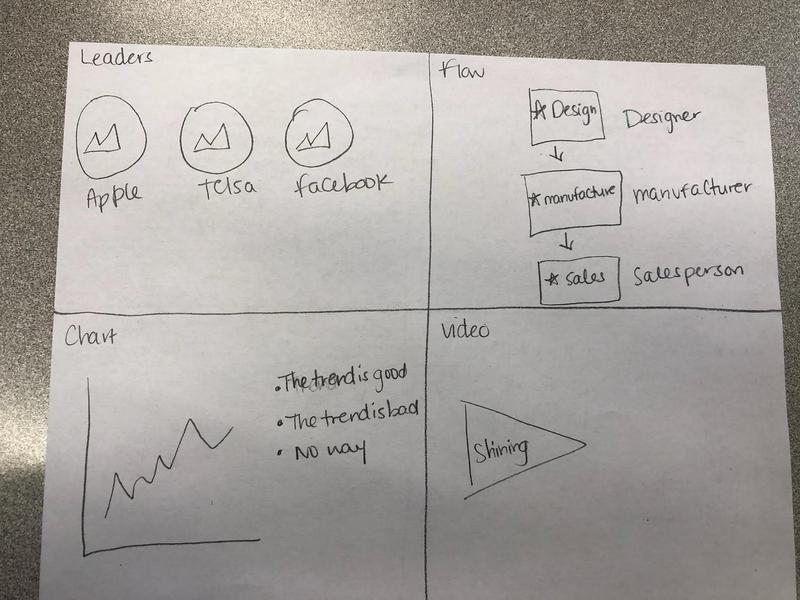 Leaders
Apple
Telsa
facebook
Flow
☆ Design
Designer
☆ manufacture
manufacturer
☆ Sales
Salesperson
Chart
• The trend is good
• The trend is bad
• No way
Video
Shining